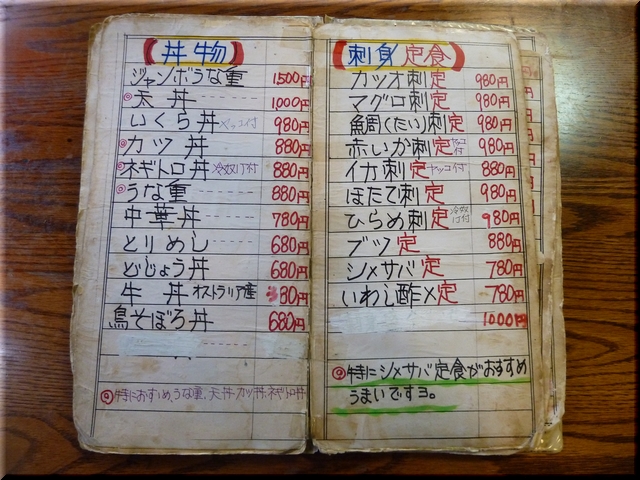 【丼物】
ジャンボうな重 1500円
◎天丼 1,000円
いくら丼 ヤッコ付 980円
◎カツ丼 880円
◎ネギトロ丼 冷奴付 880円
◎うな重 880円
中華丼 780円
とりめし 680円
どじょう丼 680円
牛丼 オストラリア産 80円
鳥そぼろ丼 680円
◎特におすすめ、うな重、天丼、カツ丼、ネギトロ丼
【刺身定食】
カツオ刺定 980円
マグロ刺定 980円
鯛(たい)刺定 980円
赤いか刺定 ヤッコ付 980円
イカ刺定 ヤッコ付 880円
ほたて刺定 980円
ひらめ刺定 冷奴付 980円
ブツ定 880円
シメサバ定 780円
いわし酢〆定 780円
1000円
◎特にシメサバ定食がおすすめ
うまいですヨ。